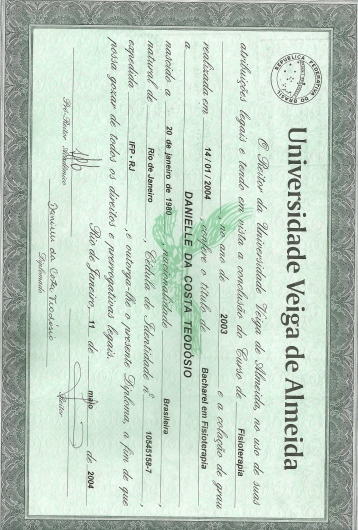 REPÚBLICA FEDERATIVA DO BRASIL
Universidade Veiga de Almeida
O Reitor da Universidade Veiga de Almeida, no uso de suas
atribuições legais e tendo em vista a conclusão do Curso de Fisioterapia
no ano de 2003 e a colação de grau
realizada em 14/01/2004 confere o título de Bacharel em Fisioterapia
a DANIELLE DA COSTA TEODÓSIO
nascido a 20 de janeiro de 1980, nacionalidade Brasileira
natural de Rio de Janeiro, Cédula de Identidade nº 10545158-7
expedida IFP - RJ, e outorga-lhe o presente Diploma, a fim de que
possa gozar de todos os direitos e prerrogativas legais.
Rio de Janeiro, 11 de maio de 2004
Pró-Reitor Acadêmico
Danielle da Costa Teodósio
Diplomado
Reitor